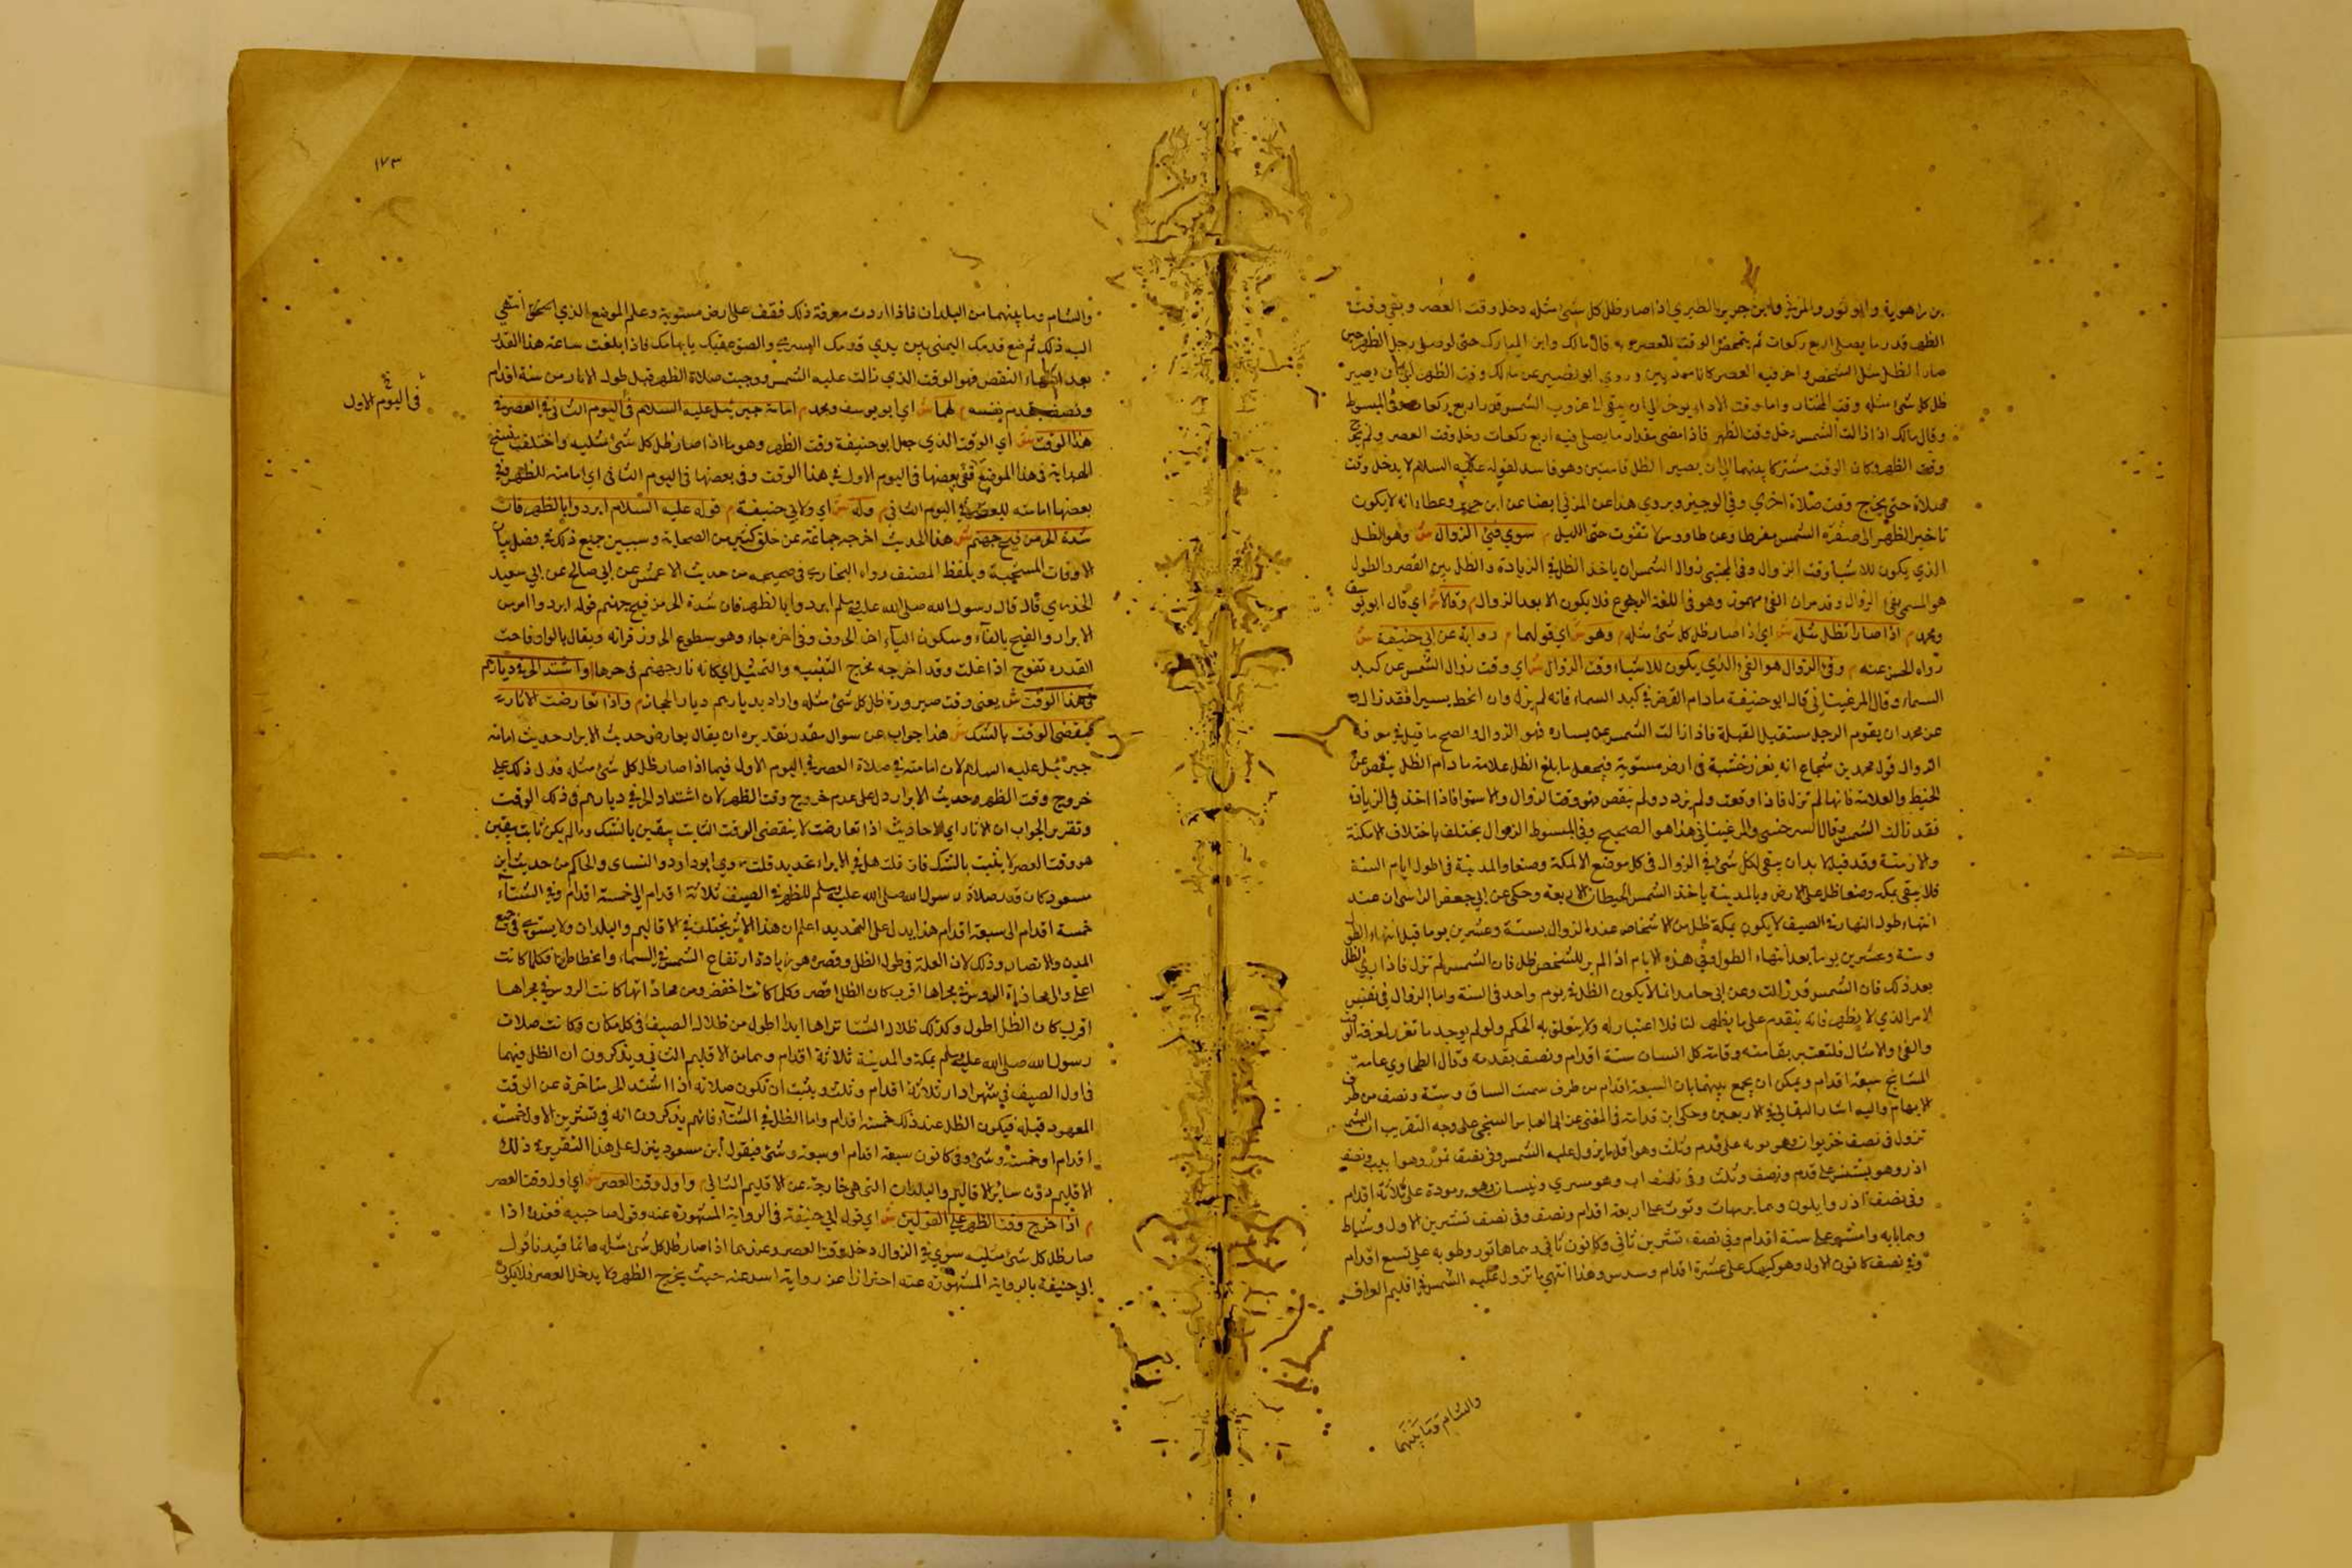 بن راهوية وابو ثور والمزني وابن جرير الطبري اذا صار ظل كل شئ مثله دخل وقت العصر وبقي وقت
الظهر قدر ما يصلي اربع ركعات ثم يتمحض الوقت للعصر وبه قال مالك وابن المبارك حتى لو صلى رجل الظهر حين
صار الظل مثل الشخص واخر فيه العصر كانا مؤديين وروي ابو نصير عن مالك وقت الظهر الى ان يصير
ظل كل شئ مثله وقت المختار واما وقت الاداء يوخر الى ان يبقى الى غروب الشمس قدر اربع ركعات وفي المبسوط
وقال مالك اذا زالت الشمس دخل وقت الظهر فاذا مضى مقدار ما يصلى فيه اربع ركعات دخل وقت العصر ولم يخرج
وقت الظهر وكان الوقت مشتركا بينهما الى ان يصير الظل قامتين وهو فاسد لقوله عليه السلام لا يدخل وقت
صلاة حتى يخرج وقت صلاة اخري وفي الوجيز ويروي هذا عن المزني ايضا عن ابن جرير وعطاء انه لا يكون
تاخير الظهر الى صفرة الشمس مفرطا وعن طاووس لا تفوت حتى الليل م سوي فئ الزوال ش وهو الظل
الذي يكون للاشيا وقت الزوال وفي المجتبى زوال الشمس ان ياخذ الظل في الزيادة والظل بين القصر والطول
هو المسمى بفئ الزوال وقد مر ان الفئ مهموز وهو في اللغة الرجوع فلا يكون الا بعد الزوال م وقالا ش اي قال ابو يوسف
ومحمد م اذا صار الظل مثله ش اي اذا صار ظل كل شئ مثله م وهو ش اي قولهما م رواية عن ابي حنيفة ش
رواه الحسن عنه م وفئ الزوال هو الفئ الذي يكون للاشياء وقت الزوال ش اي وقت زوال الشمس عن كبد
السماء وقال المرغيناني قال ابو حنيفة ما دام القرص في كبد السماء فانه لم يزل وان انحط يسيرا فقد زال
عن محمد ان يقوم الرجل مستقبل القبلة فاذا زالت الشمس عن يساره فهو الزوال والصح ما قيل في معرفة
الزوال قول محمد بن شجاع انه يغرز خشبة في ارض مستوية فيجعل ما بلغ الظل علامة ما دام الظل ينقص عن
الخيط والعلامة فانها لم تزل فاذا وقعت ولم يزدد ولم ينقص فهو وقت الزوال والاستوا فاذا اخذ في الزيادة
فقد زالت الشمس وقال السرخسي والمرغيناني هذا هو الصحيح وفي المبسوط الزوال يختلف باختلاف الامكنة
والازمنة وقد قيل لا بد ان يبقى لكل شئ في الزوال في كل موضع الا بمكة وصنعا والمدينة في اطول ايام السنة
فلا يبقى بمكة وصنعا ظل على الارض وبالمدينة ياخذ الشمس الحيطان الاربعة وحكي عن ابي جعفر الراسبي ان عند
انتهاء طول النهار في الصيف لا يكون بمكة ظل من الاشخاص عند الزوال بستة وعشرين يوما قبل انتهاء الطول
وستة وعشرين يوما بعد انتهاء الطول وفي هذه الايام اذا لم ير للشخص ظل فان الشمس لم تزل فاذا رئي الظل
بعد ذلك فان الشمس قد زالت وعن ابي حامد انما لا يكون الظل في يوم واحد في السنة واما الزوال في نفس
الامر الذي لا يظهر فانه يتقدم على ما يظهر لنا فلا اعتبار له ولا يتعلق به الحكم ولو لم يوجد ما تغرز لمعرفة الوقت
والفئ والامثال فلتعتبر بقامته وقامة كل انسان ستة اقدام ونصف بقدمه وقال الطحاوي عامة
المشايخ سبعة اقدام ويمكن ان يجمع بينهما بان السبعة اقدام من طرف سمت الساق وستة ونصف من طرف
الابهام واليه اشار البقالي في الاربعين وحكي ابن قدامة في المغني عن ابي العباس السنجي على وجه التقريب ان الشمس
تزول في نصف حزيران وهو بونه على قدم وثلث وهو اقل ما يزول عليه الشمس وفي نصف تموز وهو ابيب ونصف
اذر وهو بشنس على قدم ونصف وثلث وفي نصف اب وهو مسري ونيسان وهو برمودة على ثلاثة اقدام
وفي نصف اذر وايلول وهما برمهات وتوت على اربعة اقدام ونصف وفي نصف تشرين الاول وشباط
وهما بابه وامشير على ستة اقدام وفي نصف تشرين ثاني وكانون ثاني وهما هاتور وطوبه على تسع اقدام
وفي نصف كانون الاول وهو كيهك على عشرة اقدام وسدس وهذا انتهى ما تزول عليه الشمس في اقليم العراق
والشام وما بينهما
١٧٣
والشام وما بينهما من البلدان فاذا اردت معرفة ذلك فقف على ارض مستوية وعلم الموضع الذي انتهى
اليه ذلك ثم ضع قدمك اليمنى بين يدي قدمك اليسري والصق عقبك بابهامك فاذا بلغت ساعة هذا القدر
بعد انتهاء النقص فهو الوقت الذي زالت عليه الشمس ووجبت صلاة الظهر قبل طول الانسان ستة اقدام
ونصف بقدم نفسه م لهما ش اي ابو يوسف ومحمد م امامة جبريل عليه السلام في اليوم الثاني في العصر في
في اليوم الاول
هذا الوقت ش اي الوقت الذي جعل ابو حنيفة وقت الظهر وهو ما اذا صار ظل كل شئ مثليه واختلف نسخ
الهداية في هذا الموضع ففي بعضها في اليوم الاول في هذا الوقت وفي بعضها في اليوم الثاني اي امامته للظهر وفي
بعضها امامته للعصر في اليوم الثاني م وله ش اي ولابي حنيفة م قوله عليه السلام ابردوا بالظهر فان
شدة الحر من فيح جهنم ش هذا الحديث اخرجه جماعة عن خلق كثير من الصحابة وسيبين جميع ذلك في فصل بيان
الاوقات المستحبة وبلفظ المصنف رواه البخاري في صحيحه من حديث الاعمش عن ابي صالح عن ابي سعيد
الخدري قال قال رسول الله صلى الله عليه وسلم ابردوا بالظهر فان شدة الحر من فيح جهنم قوله ابردوا امر من
الابراد والفيح بالفآء وسكون اليآء اخر الحروف وفي اخره حاء وهو سطوع الحر وفورانه ويقال بالواو فاحت
القدر تفوح اذا غلت وقد اخرجه مخرج التشبيه والتمثيل اي كانه نار جهنم في حرها م واشتد الحر في ديارهم
في هذا الوقت ش يعني وقت صيرورة ظل كل شئ مثله واراد بديارهم ديار الحجاز م واذا تعارضت الاثار
لا ينقضي الوقت بالشك ش هذا جواب عن سوال مقدر تقديره ان يقال تعارض حديث الابراد حديث امامة
جبرئيل عليه السلام لان امامته في صلاة العصر في اليوم الاول فيما اذا صار ظل كل شئ مثله فدل ذلك على
خروج وقت الظهر وحديث الابراد دل على عدم خروج وقت الظهر لان اشتداد الحر في ديارهم في ذلك الوقت
وتقرير الجواب ان الاثار اي الاحاديث اذا تعارضت لا ينقضي الوقت الثابت بيقين بالشك وما لم يكن ثابت بيقين
هو وقت العصر لا يثبت بالشك فان قلت هل في الابراد تحديد قلت روي ابو داود والنساى والحاكم من حديث ابن
مسعود كان قدر صلاة رسول الله صلى الله عليه وسلم للظهر في الصيف ثلاثة اقدام الى خمسة اقدام وفي الشتآء
خمسة اقدام الى سبعة اقدام هذا يدل على التحديد اعلم ان هذا الامر يختلف في الاقاليم والبلدان ولا يستوي في جميع
المدن والامصار وذلك لان العلة في طول الظل وقصره هو زيادة ارتفاع الشمس في السماء وانحطاطها فكلما كانت
اعلى والى محاذاة الروس في مجراها اقرب كان الظل اقصر وكلما كانت اخفض ومن محاذاتها كانت الروس في مجراها
اقرب كان الظل اطول وكذلك ظلال الشتا تراها ابدا اطول من ظلال الصيف في كل مكان وكانت صلاة
رسول الله صلى الله عليه وسلم بمكة والمدينة ثلاثة اقدام وهما من الاقليم الثاني ويذكرون ان الظل فيهما
في اول الصيف في شهر اذار ثلاثة اقدام وثلث ويثبت ان تكون صلاته اذا اشتد الحر متاخرة عن الوقت
المعهود قبله فيكون الظل عند ذلك خمسة اقدام واما الظل في الشتآء فانهم يذكرون انه في تشرين الاول خمسة
اقدام او خمسة وشئ وفي كانون سبعة اقدام او سبعة وشئ فيقول ابن مسعود ينزل على هذا التقرير في ذلك
الاقليم دون سائر الاقاليم والبلدان التي هي خارجة عن الاقليم الثاني م واول وقت العصر ش اي اول وقت العصر
م اذا خرج وقت الظهر على القولين ش اي قول ابي حنيفة في الرواية المشهورة عنه وقول صاحبيه فعنده اذا
صار ظل كل شئ مثليه سوي فئ الزوال دخل وقت العصر وعندهما اذا صار ظل كل شئ مثله وانما قيدنا قول
ابي حنيفة بالرواية المشهورة عنه احترازا عن رواية اسد عنه حيث يخرج الظهر ولا يدخل العصر فلا يكون